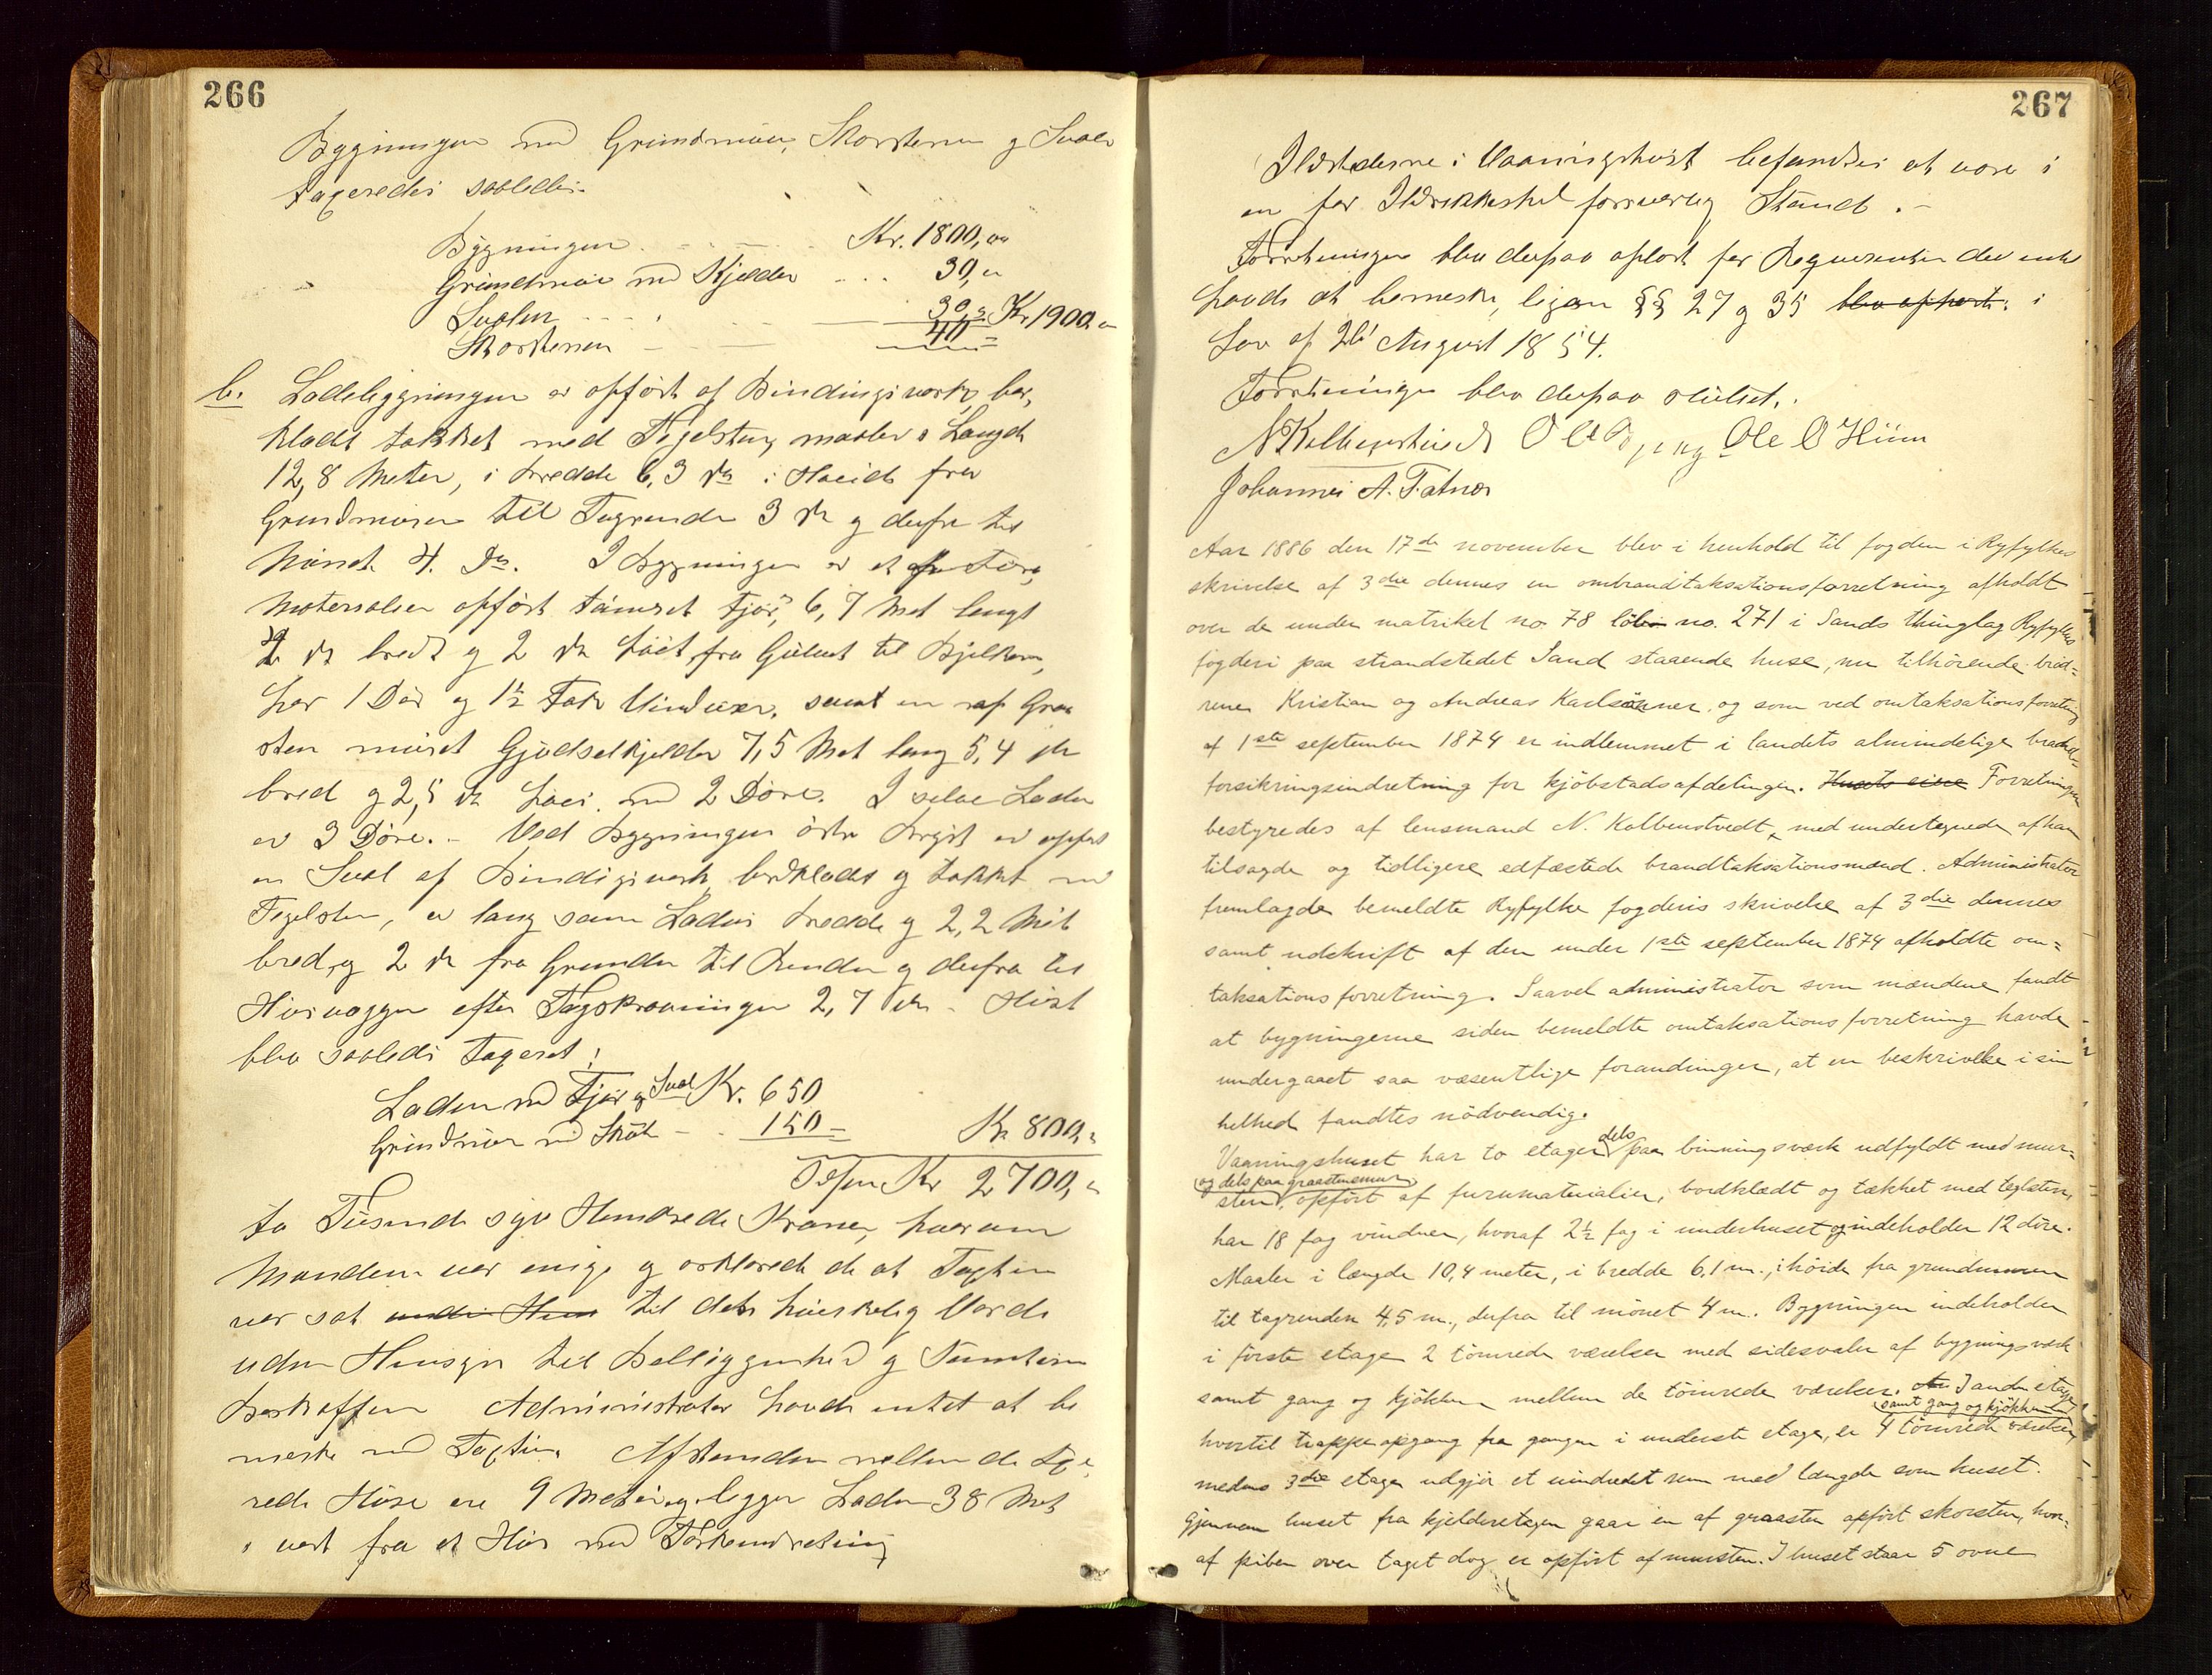 266
Bygningen med Grundmuur, Skorstenen og Sval
taxeredes saaledes:
Bygningen Kr. 1800,00
Grundmur med Kjelder 30,00
Svalen 30,00 Kr 1900,00
Skorstenen 40
b. Ladebygningen er opført af Bindingsværk, bor,
klædt tækket med Tegelsten, maaler i Længde
12,8 Meter, i Bredde 6,3 do i Høide fra
Grundmuren til Tagrenden 3 do og derfra til
Mønet 4 Do. I Bygningen er et af Furu
Materialier opført tømret Fjøs, 6,7 Met langt
do bredt og 2 do høit fra Gulvet til Bjelken,
har 1 Dør og 1½ Fak Vinduer, samt en af Graa
sten muret Gjødselkjelder 7,5 Met lang 5,4 do
bred og 2,5 do høi med 2 Døre. I selve Laden
er 3 Døre. - Ved Bygningen østre Bryst er opført
en Sval af Bindigsværk, bordklædt og tækket med
Tegelsten, er lang som Ladens Bredde og 2,2 Met
bred, og 2 do fra Grunden til Renden og derfra til
Husvæggen efter Tagskraaningen 2,7 do. Huset
blev saaledes taxeret:
Laden med Fjøs og Sval Kr. 650
Grundmur med 150 Kr 800,
Kr 2700,
to Tusende syv Hundrede Kroner, hvorom
Mændene var enige og erklærede de at Taxten
var sat under Hens til dets høieste Værdi
uden Hensyn til Beliggenhed og Tomtens
Beskaffen Administrator havde intet at be
mærke ved Taxten. Afstanden mellem de taxe,
rede Huse ere 9 Meter og ligger Laden 38 Met
i vest fra et Hus med Tørkeindretning
267
Ildstederne i Vaaningshuset befandtes at være i
en for Ildsikkerhed forsvarlig Stand. -
Forretningen blev derpaa oplæst for Requirenten der intet
havde at bemerke, ligesom §§ 27 og 35 blev oplæst: i
Lov af 26 August 1854.
Forretningen blev derpaa sluttet.
N Kolbenstvedt Ole O Hiim
Johannes A. Fatnes
Aar 1886 den 17de november blev i henhold til fogden i Ryfylkes
skrivelse af 3die dennes en ombrandtaksationsforretning afholdt
over de under matrikel no. 78 løben no. 271 i Sands thinglag Ryfylkes
fogderi paa strandstedet Sand staaende huse, nu tilhørende brød-
rene Kristian og Andreas Karlsønner, og som ved omtaksationsforretning
af 1ste september 1874 er indlemmet i landets almindelige brand-
forsikringsindretning for kjøbstadsafdelingen. Husets eiere Forretningen
bestyredes af lensmand N. Kolbenstvedt, med undertegnede af ham
tilsagde og tidligere edfæstede brandtaksationsmænd. Administrator
fremlagde bemeldte Ryfylke fogderis skrivelse af 3die dennes
samt udskrift af den under 1ste september 1874 afholdte om-
taksationsforretning. Saavel administrator som mændene fandt
at bygningerne siden bemeldte omtaksationsforretning havde
undergaaet saa væsentlige forandringer, at en beskrivelse i sin
helhed fandtes nödvendig.
Vaaningshuset har to etager dels paa binningsværk udfyldt med mur-
og dels paa graastensmur
sten, opført af furumaterialier, bordklædt og tækket med teglsten,
har 18 fag vinduer, hvoraf 2½ fag i underhuset og indeholder 12 döre.
Maaler i længde 10,4 meter, i bredde 6,1 m., i höide fra grundmuren
til tagrenden 4,5 m., derfra til mönet 4 m. Bygningen indeholder
i förste etage 2 tömrede værelser med sidesvaler af bygningsværk
samt gang og kjökken mellem de tömrede værelser. I anden etage
samt gang og kjökken
hvortil trappeopgang fra gangen i underste etage, er 4 tömrede værelser,
medens 3die etage udgjör et uindredet rum med længde som huset.
Gjennem huset fra kjelderetagen gaar en af graasten opfört skorsten, hvor-
af piben over taget dog er opfört af mursten. I huset staar 5 ovne